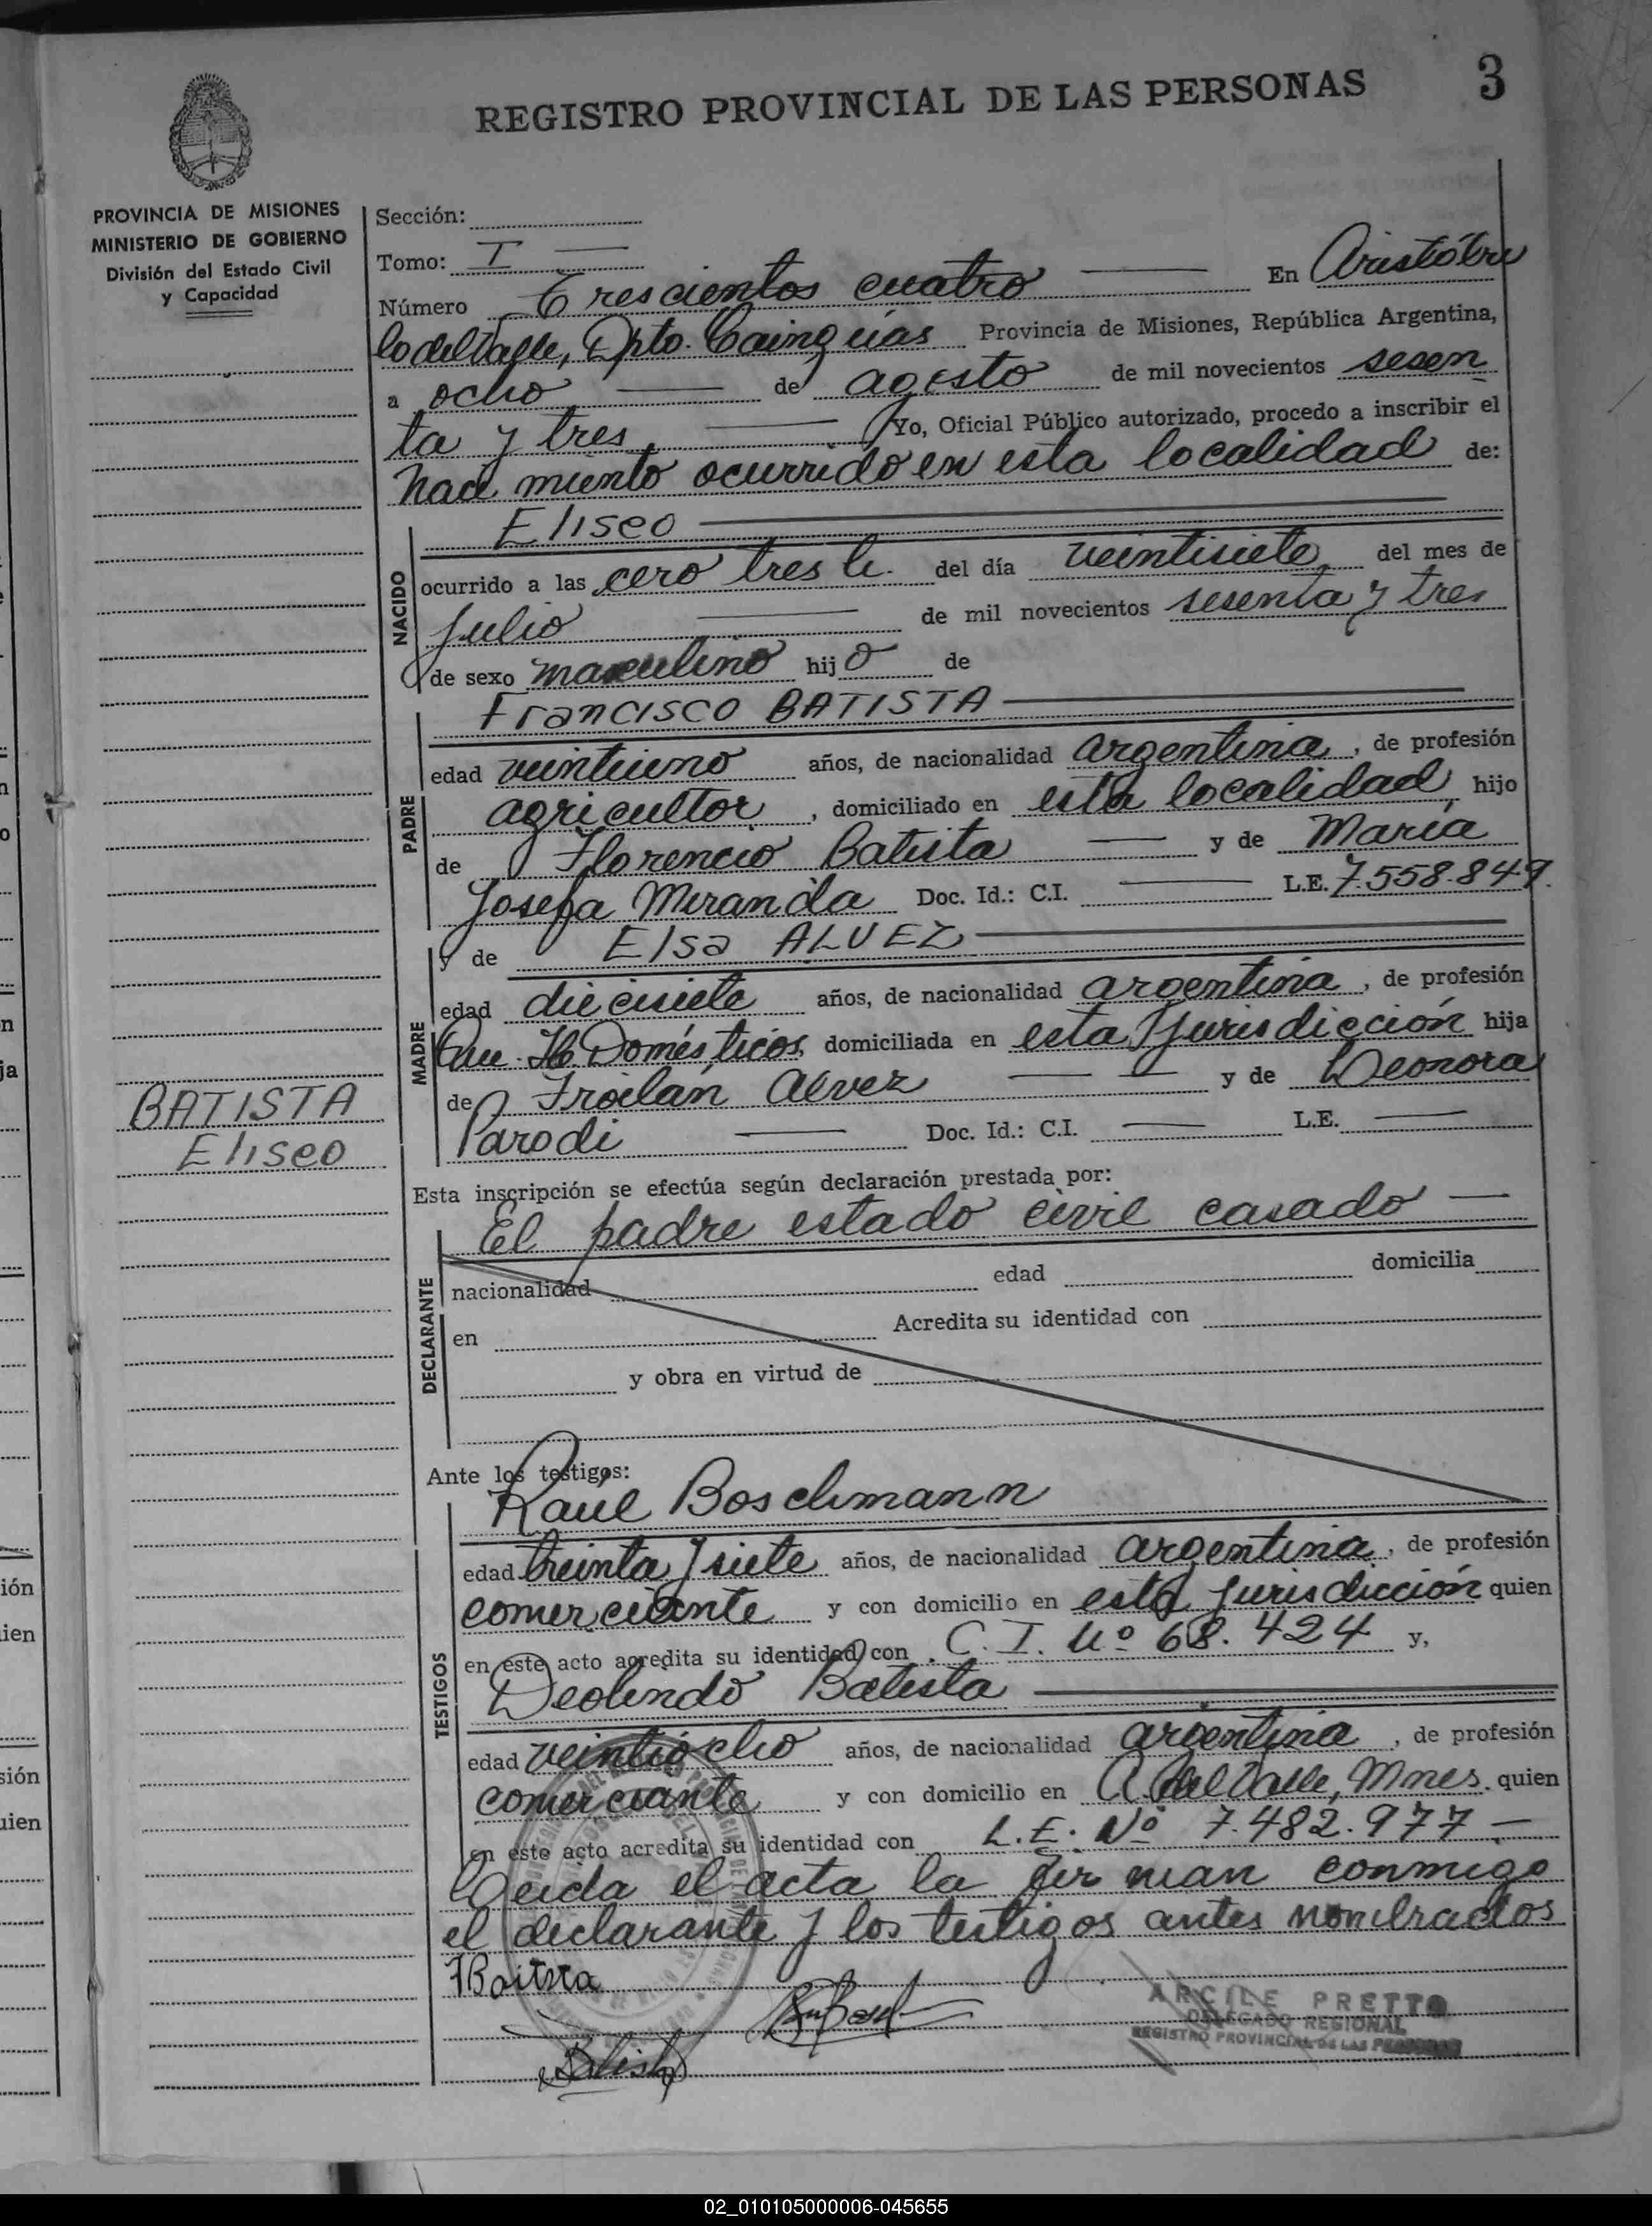 REGISTRO PROVINCIAL DE LAS PERSONAS
3
PROVINCIA DE MISIONES
MINISTERIO DE GOBIERNO
División del Estado Civil
y Capacidad
Sección:
Tomo: I
Número Trescientos cuatro En Aristóbu
lo del Valle, Dpto. Cainguás Provincia de Misiones, República Argentina,
a ocho de agosto de mil novecientos sesen
ta y tres. Yo, Oficial Público autorizado, procedo a inscribir el
naci miento ocurrido en esta localidad de:
NACIDO
Eliseo
ocurrido a las cero tres h. del día veintisiete del mes de
Julio de mil novecientos sesenta y tres
de sexo masculino hijo de
PADRE
Francisco BATISTA
edad veintiuno años, de nacionalidad argentina, de profesión
agricultor, domiciliado en esta localidad, hijo
de Florencio Batista y de María
Josefa Miranda Doc. Id.: C.I. L.E. 7.558.849.
MADRE
y de Elsa ALVEZ
edad diecisiete años, de nacionalidad argentina, de profesión
Qu. H. Domésticos, domiciliada en esta Jurisdicción hija
de Froilán Alvez y de Leonora
Parodi Doc. Id.: C.I. L.E.
BATISTA
Eliseo
Esta inscripción se efectúa según declaración prestada por:
El padre estado civil casado
DECLARANTE
nacionalidad edad domicilia
en Acredita su identidad con
y obra en virtud de
Ante los testigos:
TESTIGOS
Raul Boschmann
edad treinta y siete años, de nacionalidad argentina, de profesión
comerciante y con domicilio en esta Jurisdicción quien
en este acto acredita su identidad con C. I. Nº 68.424 y,
Deolindo Batista
edad veintiocho años, de nacionalidad argentina, de profesión
comerciante y con domicilio en A. del Valle, Mnes. quien
en este acto acredita su identidad con L.E. Nº 7.482.977
Leida el acta la firman conmigo
el declarante y los testigos antes nombrados
ARCILE PRETTO
DELEGADO REGIONAL
REGISTRO PROVINCIAL DE LAS PERSONAS
02_010105000006-045655